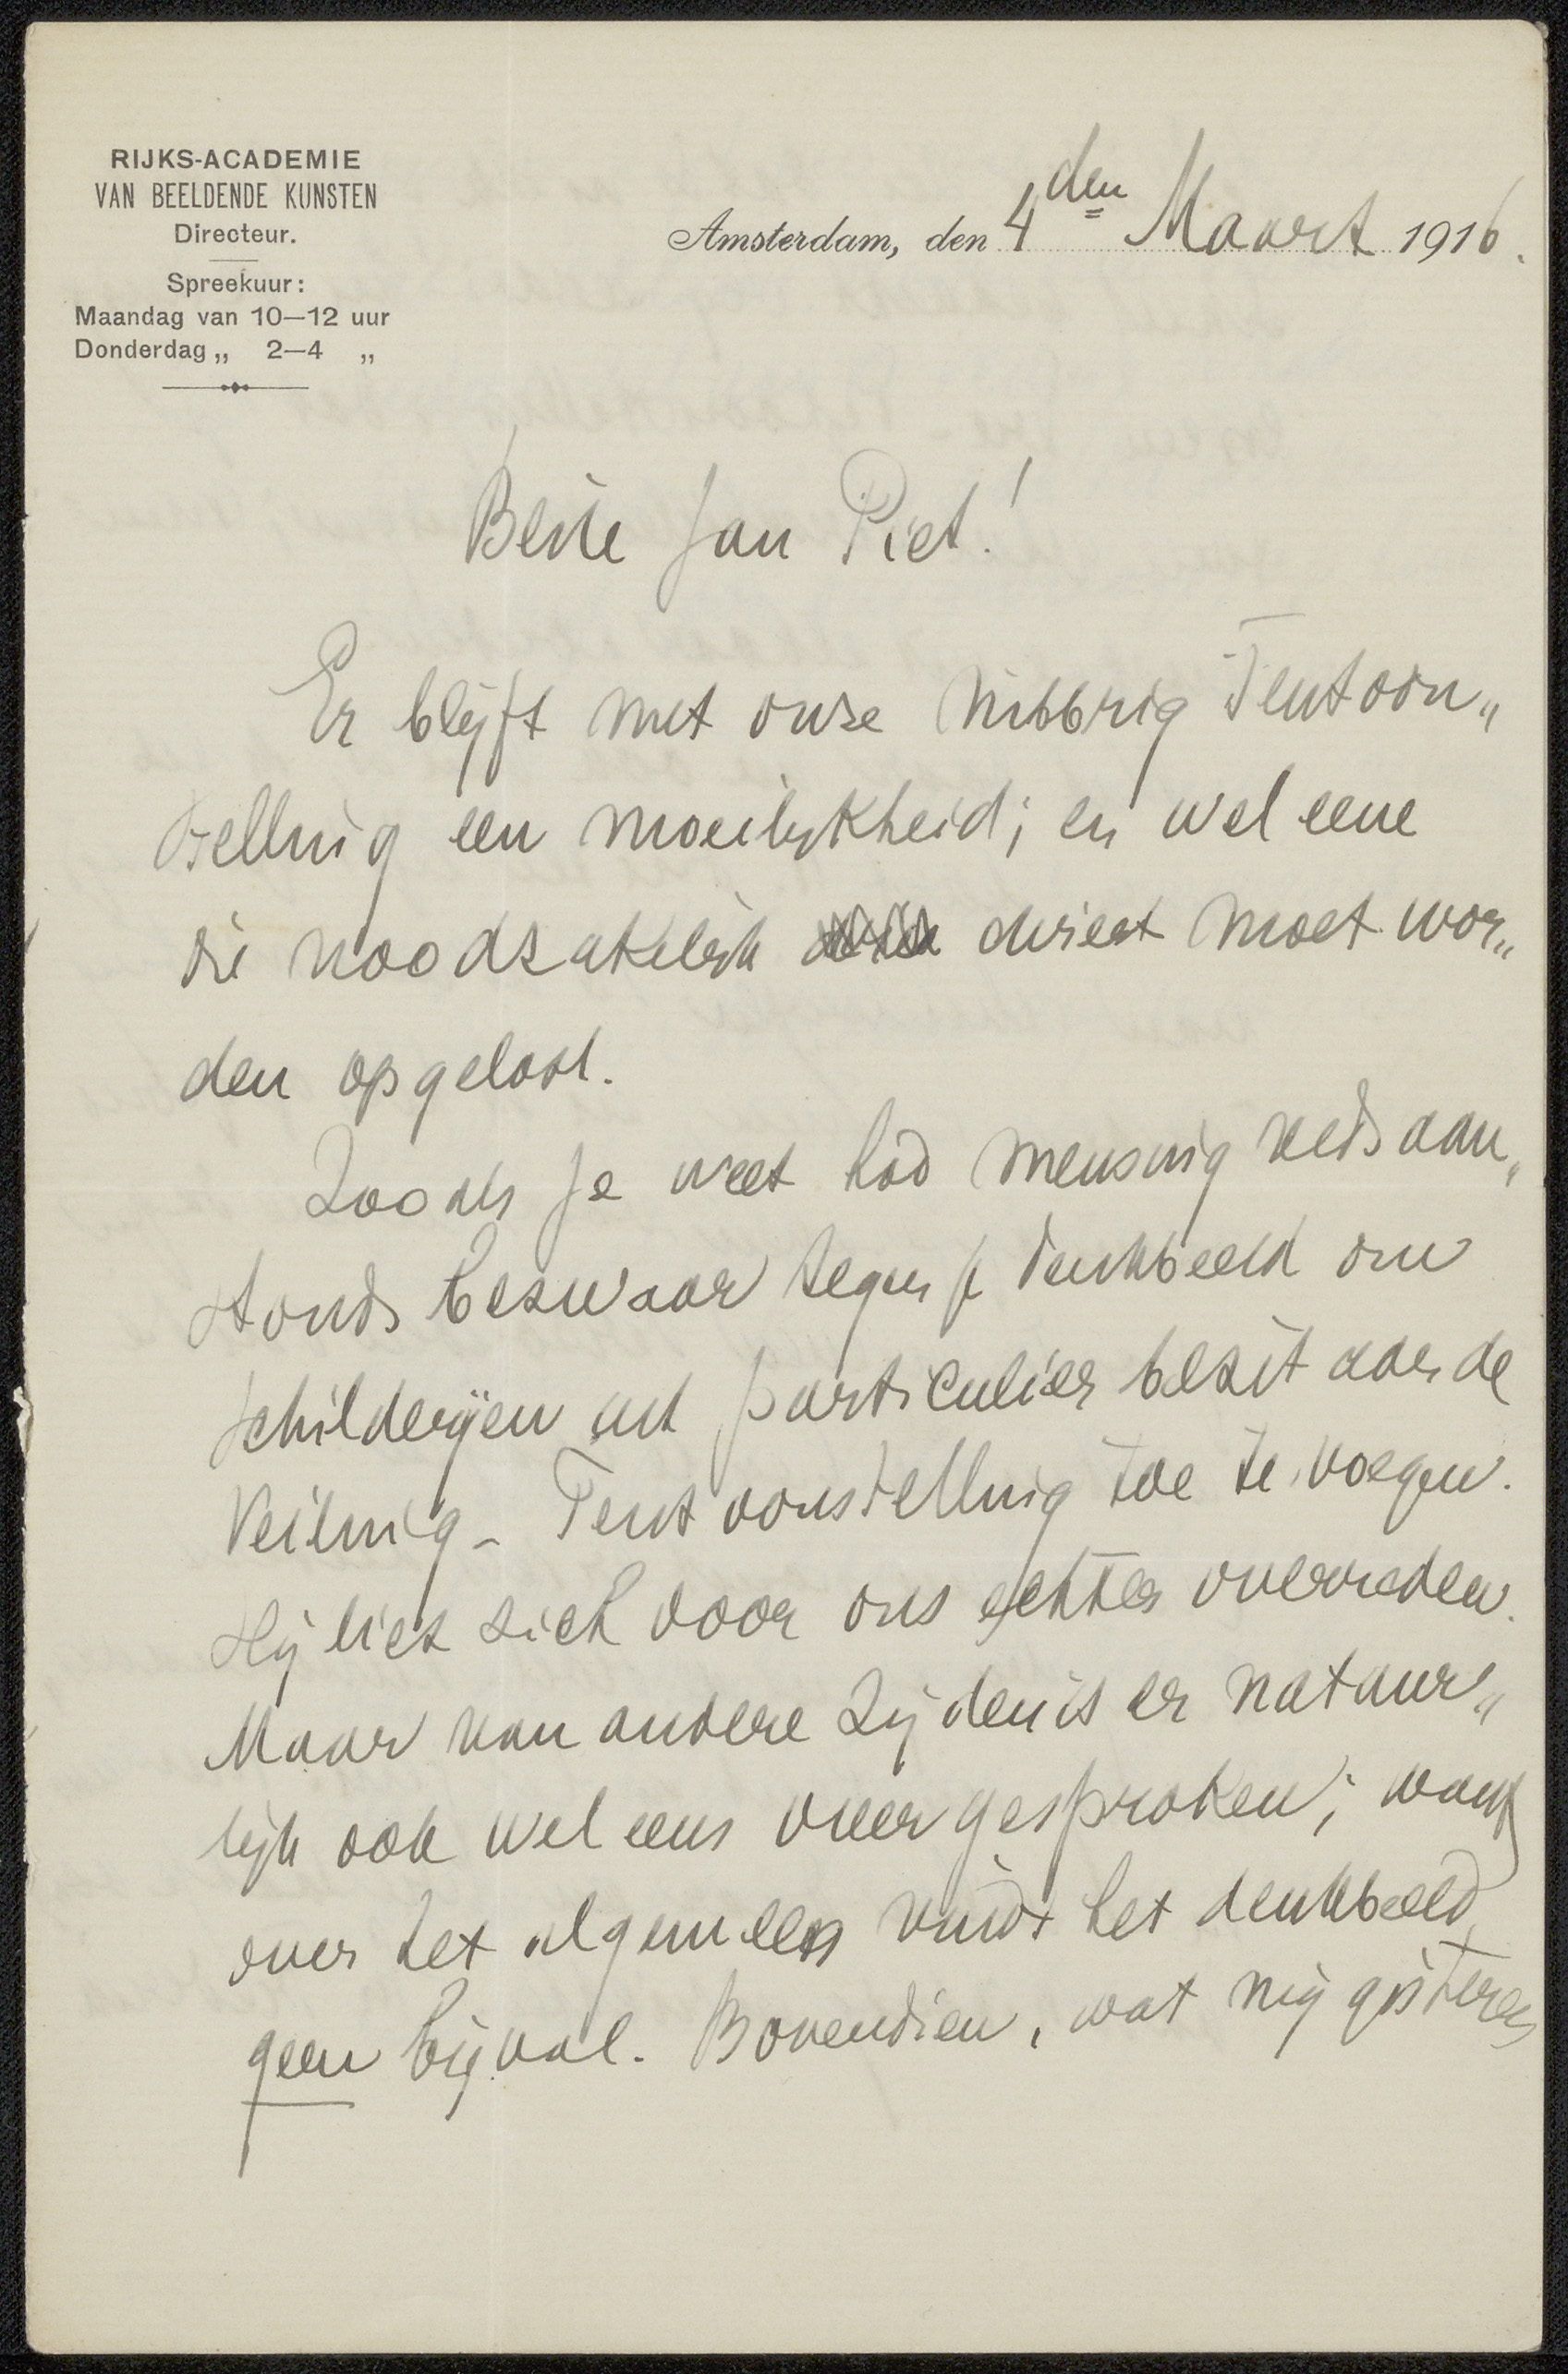 RIJKS-ACADEMIE
VAN BEELDENDE KUNSTEN
Directeur.
Spreekuur:
Maandag van 10—12 uur
Donderdag „ 2—4 „
Amsterdam, den 4den Maart 1916.
Beste Jan Piet!
Er blijft met onze Nibbrig Tentoon„
stelling een moeilijkheid; en wel eene
die noodzakelijk direct moet wor„
den opgelost.
Zooals je weet had Mensing reeds aan„
stonds bezwaar tegen je denkbeeld om
schilderijen uit particulier bezit aan de
Veiling-Tentoonstelling toe te voegen.
Hij liet zich door ons echter overreden.
Maar van andere zijden is er natuur„
lijk ook wel eens over gesproken; want
over het algemeen vindt het denkbeeld
geen bijval. Bovendien, wat mij gisteren